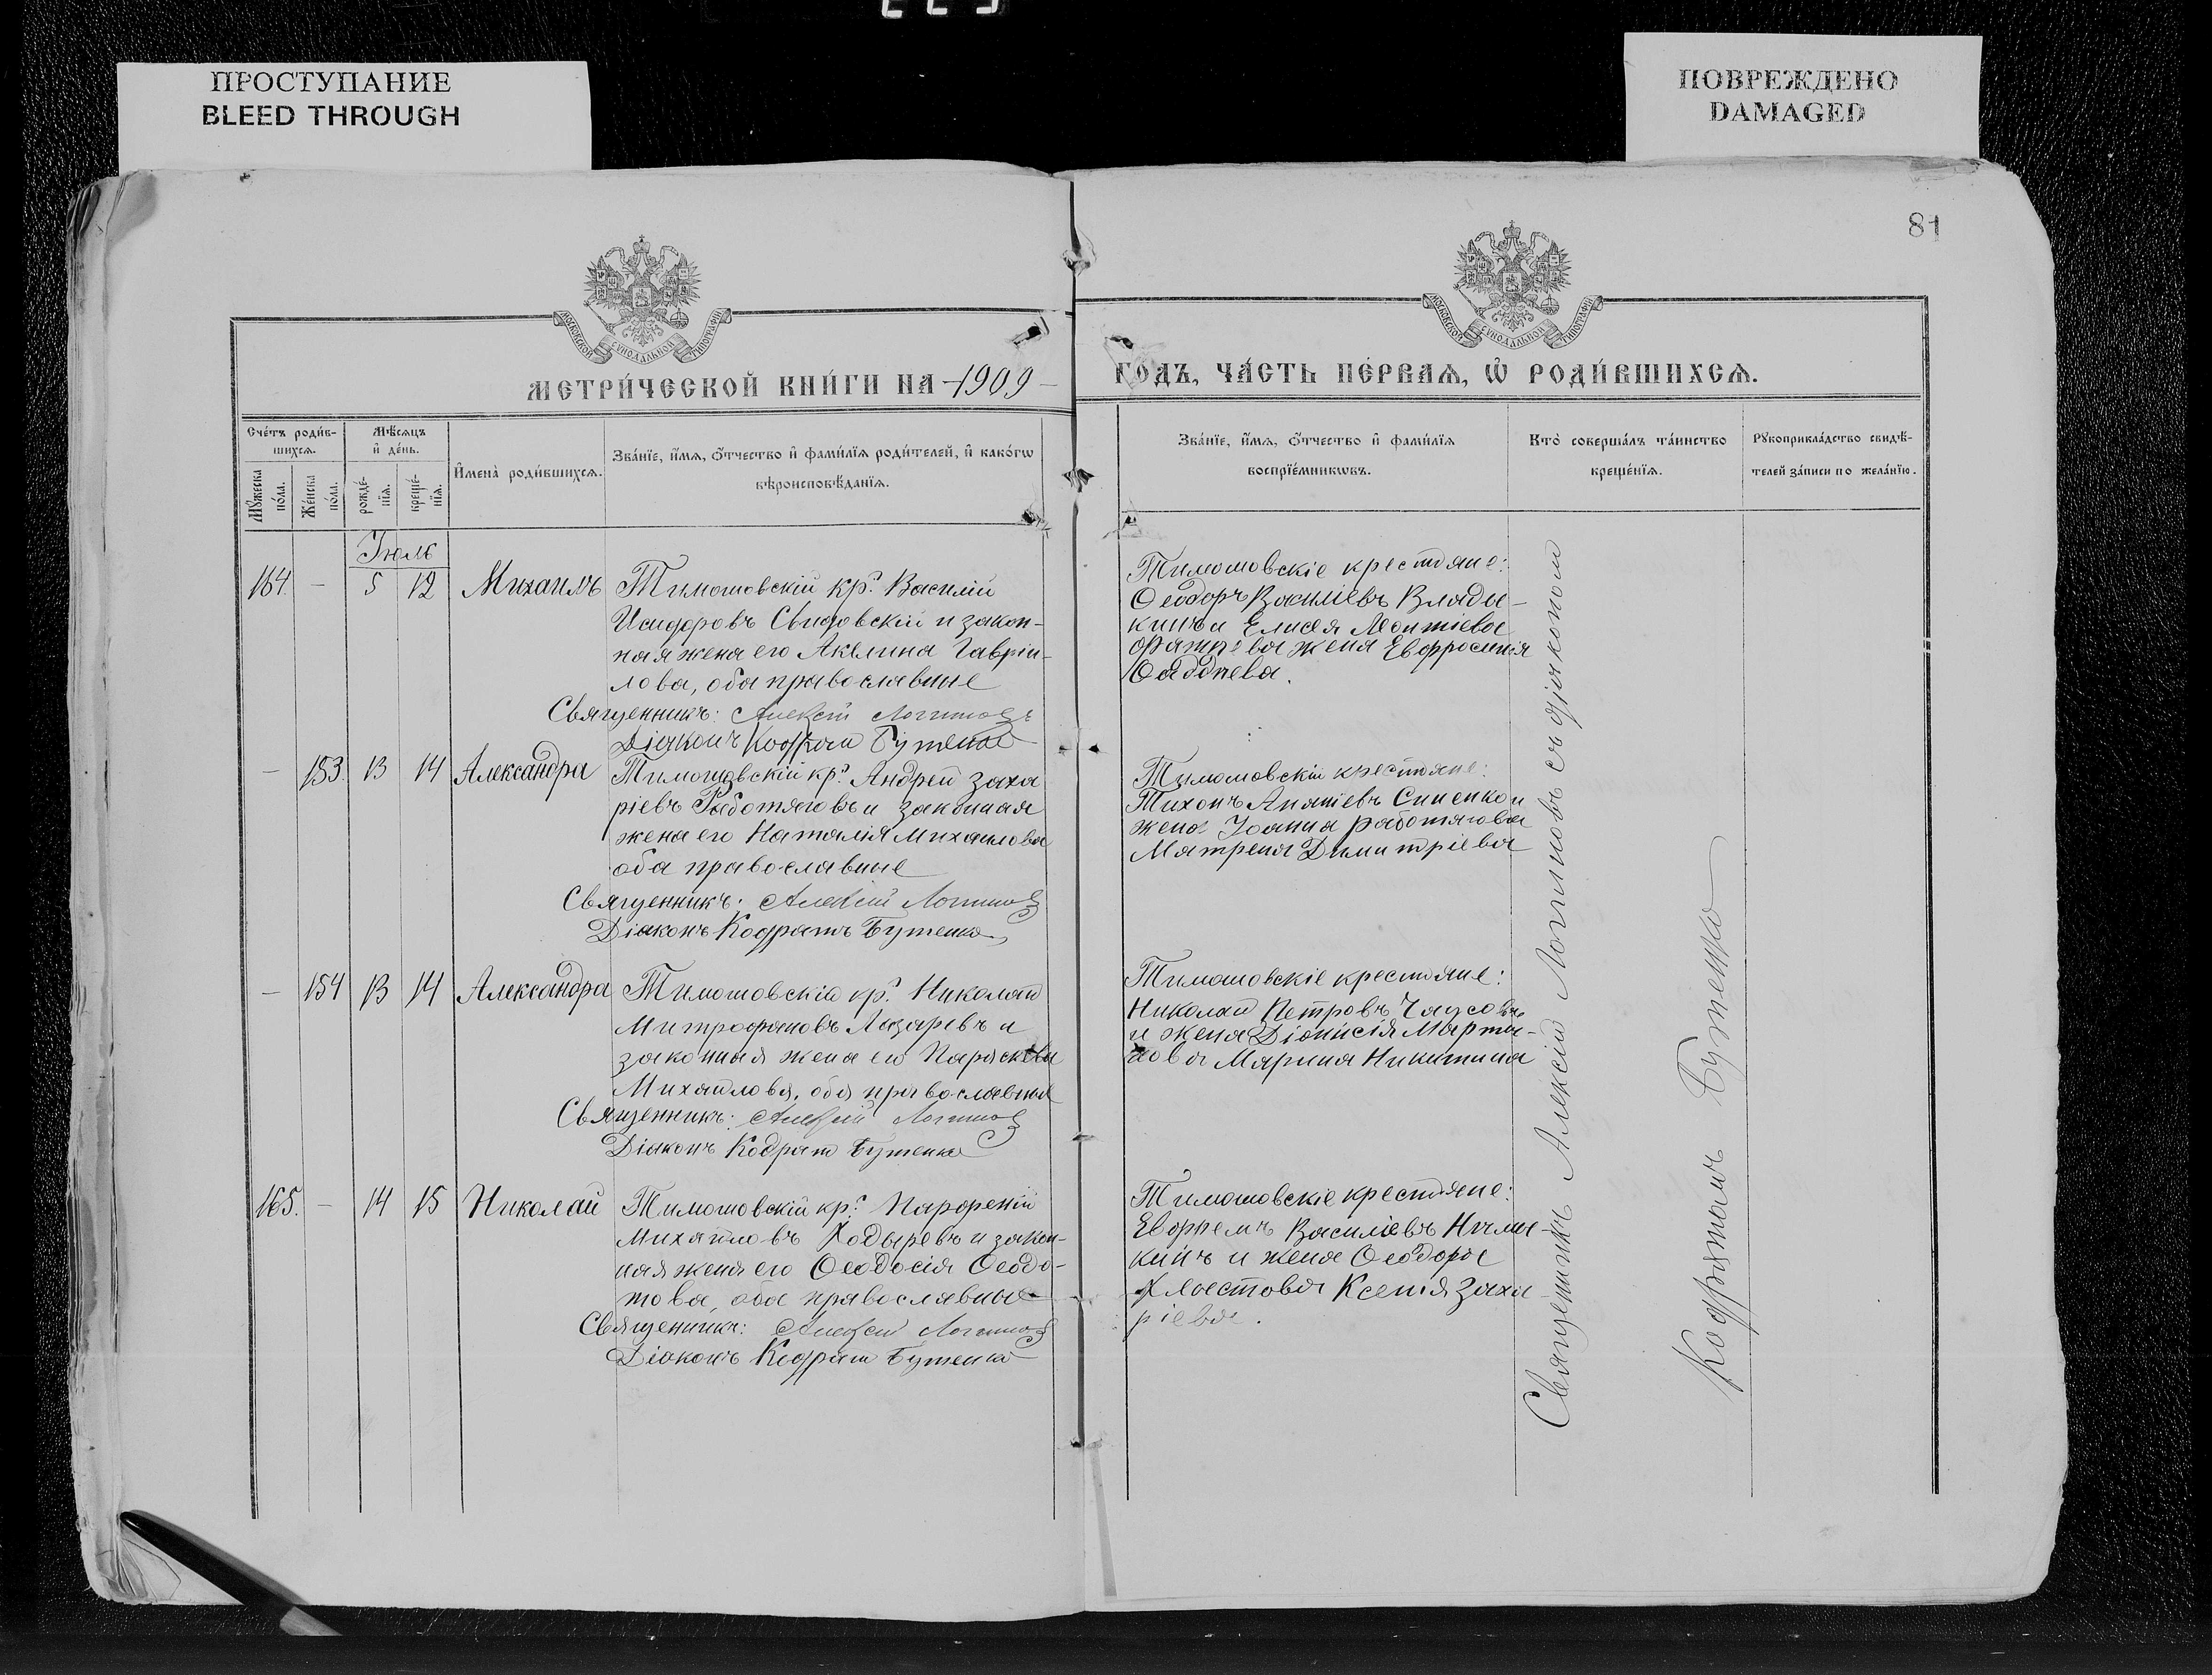 ПРОСТУПАНИЕ
BLEED THROUGH
ПОВРЕЖДЕНО
DAMAGED
81
МОСКОВСКОЙ СѴНОДАЛЬНОЙ ТИПОГРАФІИ
МОСКОВСКОЙ СѴНОДАЛЬНОЙ ТИПОГРАФІИ
МЕТРИ́ЧЕСКОЙ КНИ́ГИ НА 1909
ГО́ДЪ, ЧА́СТЬ ПЕ́РВАѦ, Ѡ҆ РОДИ́ВШИХСѦ.
Сче́тъ роди́в-
шихсѧ.
Мѣ́сѧцъ
и҆ де́нь.
Мꙋ́жеска
по́ла.
Же́нска
по́ла.
рожде́-
нїѧ.
креще́-
нїѧ.
И҆мена̀ роди́вшихсѧ.
Зва́нїе, и҆́мѧ, ѻ҆́тчество и҆ фами́лїѧ роди́телей, и҆ како́гѡ
вѣроисповѣ́данїѧ.
Зва́нїе, и҆́мѧ, ѻ҆́тчество и҆ фами́лїѧ
воспрїе́мникѡвъ.
Кто̀ соверша́лъ та́инство
креще́нїѧ.
Рꙋкоприкла́дство свидѣ́-
телей за́писи по жела́нїю.
Іюль
164. — 5 12 Михаилъ
Тимошовскій кр. Василій
Исидоровъ Свидовскій и закон-
ная жена его Акелина Гавріи-
лова, оба православные
Священникъ: Алексій Логиновъ
Діаконъ Кодратъ Бутенко
Тимошовскіе крестьяне:
Ѳеодоръ Василіевъ Влады-
кинъ и Елисея Леонтіева
жена Евфросинія
— 153. 13 14 Александра
Тимошовскій кр. Андрей Заха
ріевъ Работяговъ и законная
жена его Наталія Михаилова
оба православные
Священникъ: Алексій Логиновъ
Діаконъ Кодратъ Бутенко
Тимошовскіи крестьяне:
Тихонъ Ананіевъ Синенко и
жена Іоанна Работягова
Матрена Димитріева
— 154 13 14 Александра
Тимошовскій кр. Николай
Митрофановъ Лазаревъ и
законная жена его Параскева
Михайлова, оба православные
Священникъ: Алексій Логиновъ
Діаконъ Кодратъ Бутенко
Тимошовскіе крестьяне:
Николай Петровъ Чаусовъ
и жена Діонисія Марты-
нова Марина Никитина
165. — 14 15 Николай
Тимошовскій кр. Парфеній
Михайловъ Ходыревъ и закон-
ная жена его Ѳеодосія Ѳеодо-
това, оба православные
Священникъ: Алексій Логиновъ
Діаконъ Кодратъ Бутенко
Тимошовскіе крестьяне:
Евфремъ Василіевъ
и жена Ѳеодора
Хлыстова Ксенія Заха-
ріева.
Священникъ Алексій Логиновъ съ діакономъ
Кодратомъ Бутенко